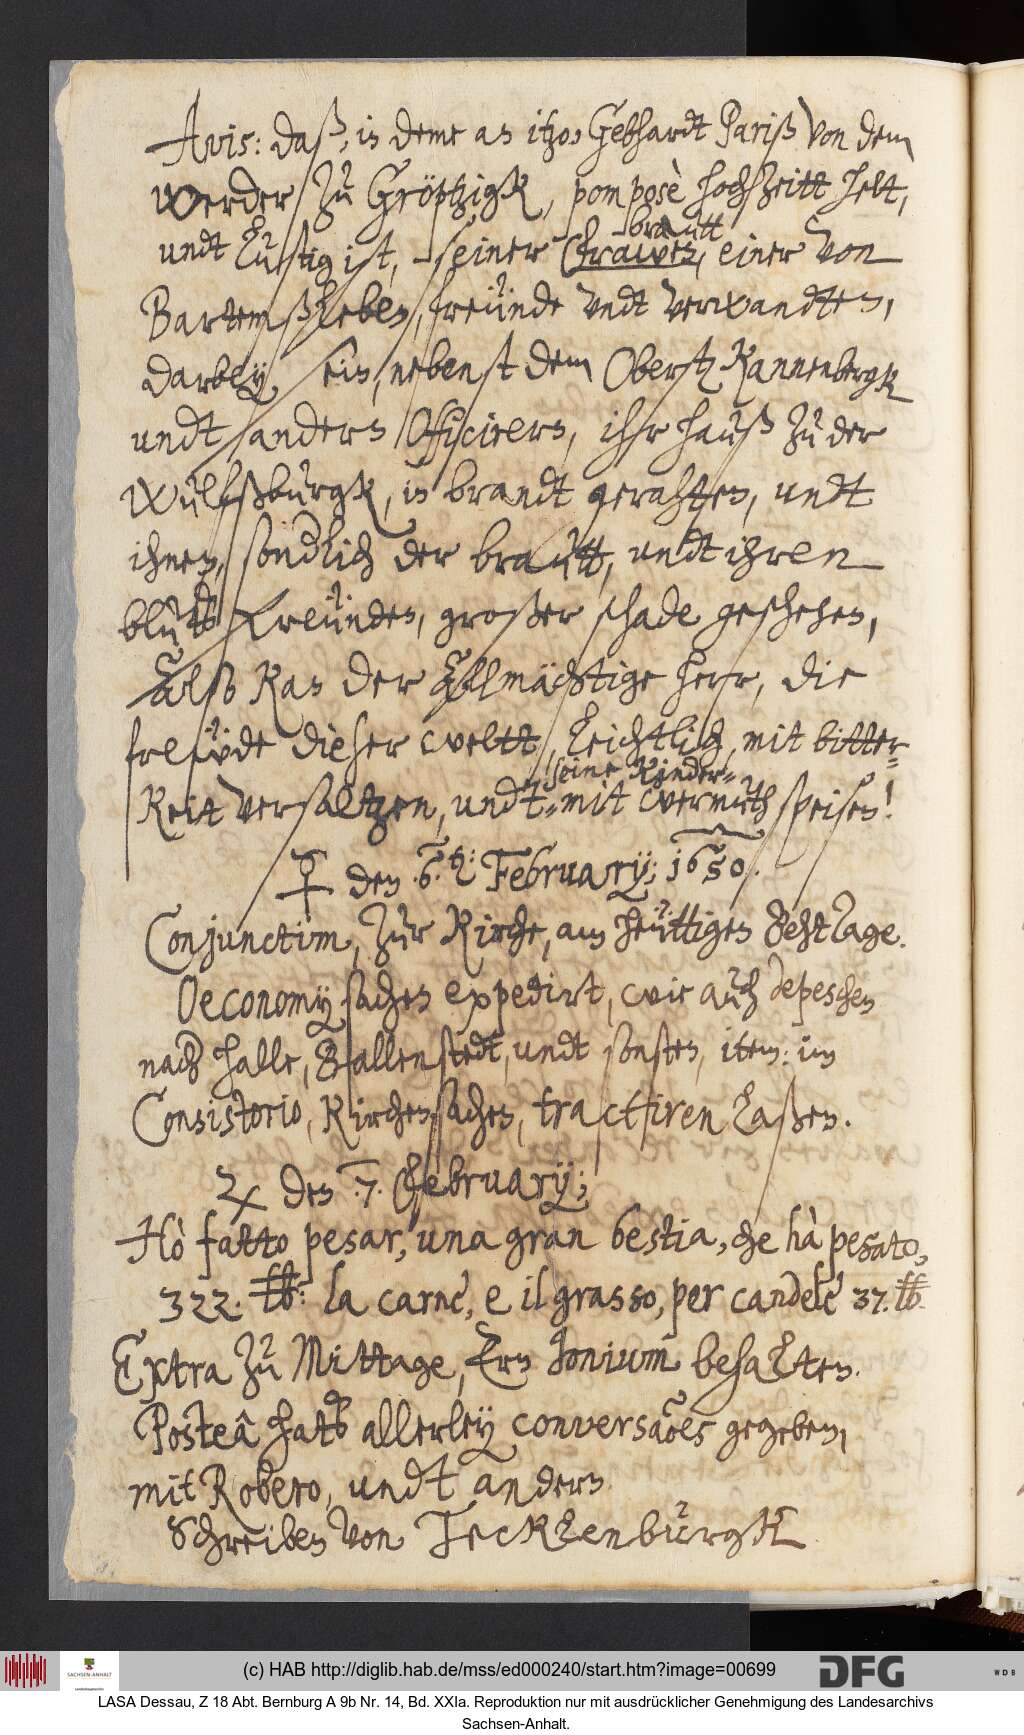 Avis: daß, in deme an itzo, Gebhardt Pariß von dem
werder zu Gröptzigk, pomposè hochzeitt helt,
undt lustig ist, seiner Frawen, einer von
brautt
Bartemßleben, freünde undt verwandten,
darbey sein, nebenst dem Oberst Kannenbergk
undt andern Officirern, ihr hauß zu der
Wulfßburgk, in brandt gerahten, undt
ihnen, söndlich der brautt, undt ihren
bluts Freünden, großer schade geschehen,
Also kan der Allmächtige herr, die
freüde dieser weltt, leichtlich, mit bitter-
seine Kinder
keit versaltzen, undt mit wermuth speisen!
♀ den 6. February; 1650.
Conjunctim, zur Kirche, am heüttigen Behttage.
Oeconomysachen expedirt, wie auch depeschen
nach Halle, Ballenstedt, undt sonsten, item: im
Consistorio, Kirchensachen, tractiren laßen.
♄ den .7. February;
Hò fatto pesar, una gran bestia, che hà pesato,
322. ℔: la carne, e il grasso, per candele 37. ℔.
Extra zu Mittage, Ern Jonium behalten.
Posteâ hats allerley conversaões gegeben,
mit Robero, undt andern
Schreiben von Tecklenburgk
(c) HAB http://diglib.hab.de/mss/ed000240/start.htm?image=00699
SACHSEN-ANHALT
DFG
WDB
LASA Dessau, Z 18 Abt. Bernburg A 9b Nr. 14, Bd. XXIa. Reproduktion nur mit ausdrücklicher Genehmigung des Landesarchivs
Sachsen-Anhalt.